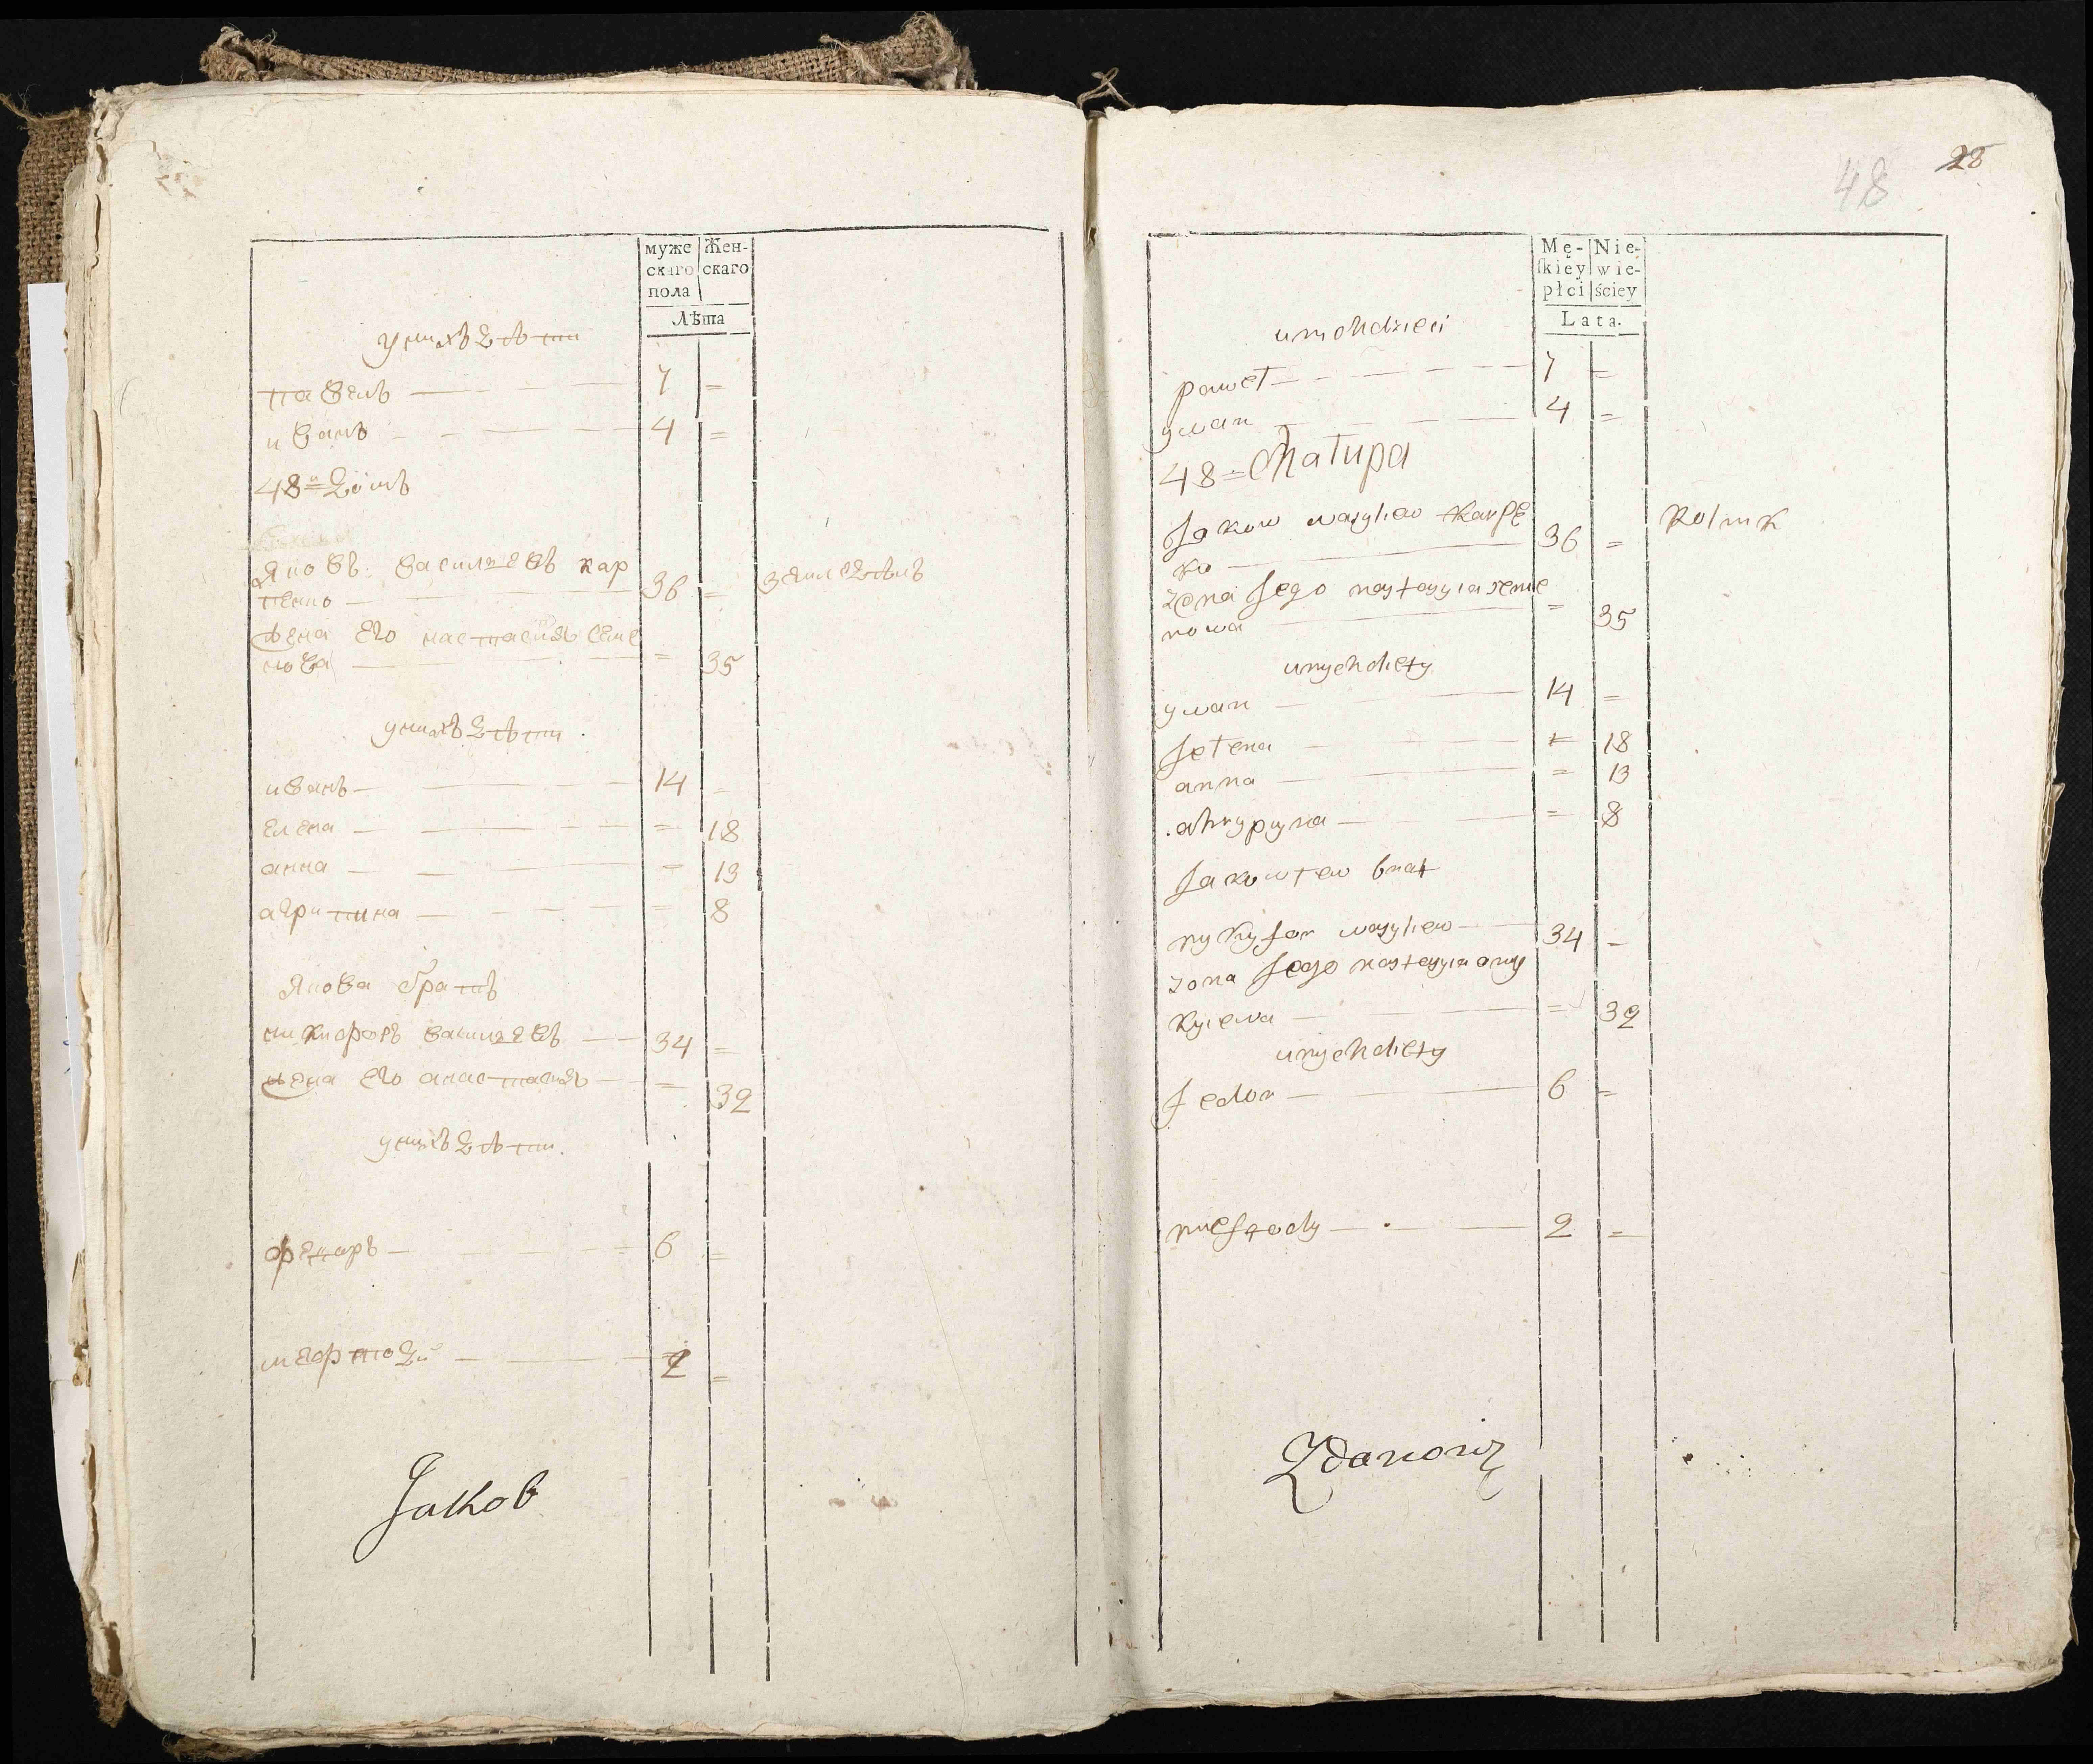 муже
скаго
пола
Жен-
скаго
Лѣта
у нихъ дѣти
павелъ 7 =
иванъ 4 =
48 = домъ
Яковъ василевъ кар
пенко 36 = земледѣлъ
жена его настасия семе
нова = 35
у нихъ дѣти
иванъ 14 =
елена = 18
анна = 13
агрипина = 8
Якова братъ
никифоръ василевъ 34 =
жена его анастасия = 32
у нихъ дѣти
федоръ 6 =
мефтоди 2 =
Jakob
48 28
Mę-
skiey
płci
Nie-
wie-
ściey
Lata.
unichdzieci
paweł 7 =
ywan 4 =
48 = Chałupa
Jakow wasylew Karpę
ko 36 = Rolnik
zona Jego nastasyia seme
nowa = 35
unychdiety
ywan 14 =
Jelena = 18
anna = 13
ahrypyna = 8
Jakowlew brat
nykyfor wasylew 34 =
zona Jego nastasyia any
kyiewa = 32
unychdiety
Fedor 6 =
meftody 2 =
Zdanowicz